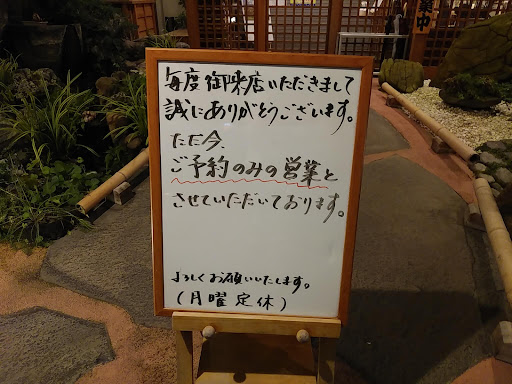 毎度御来店いただきまして
誠にありがとうございます。
ただ今、
ご予約のみの営業と
させていただいております。
よろしくお願いいたします。
(月曜定休)
業中